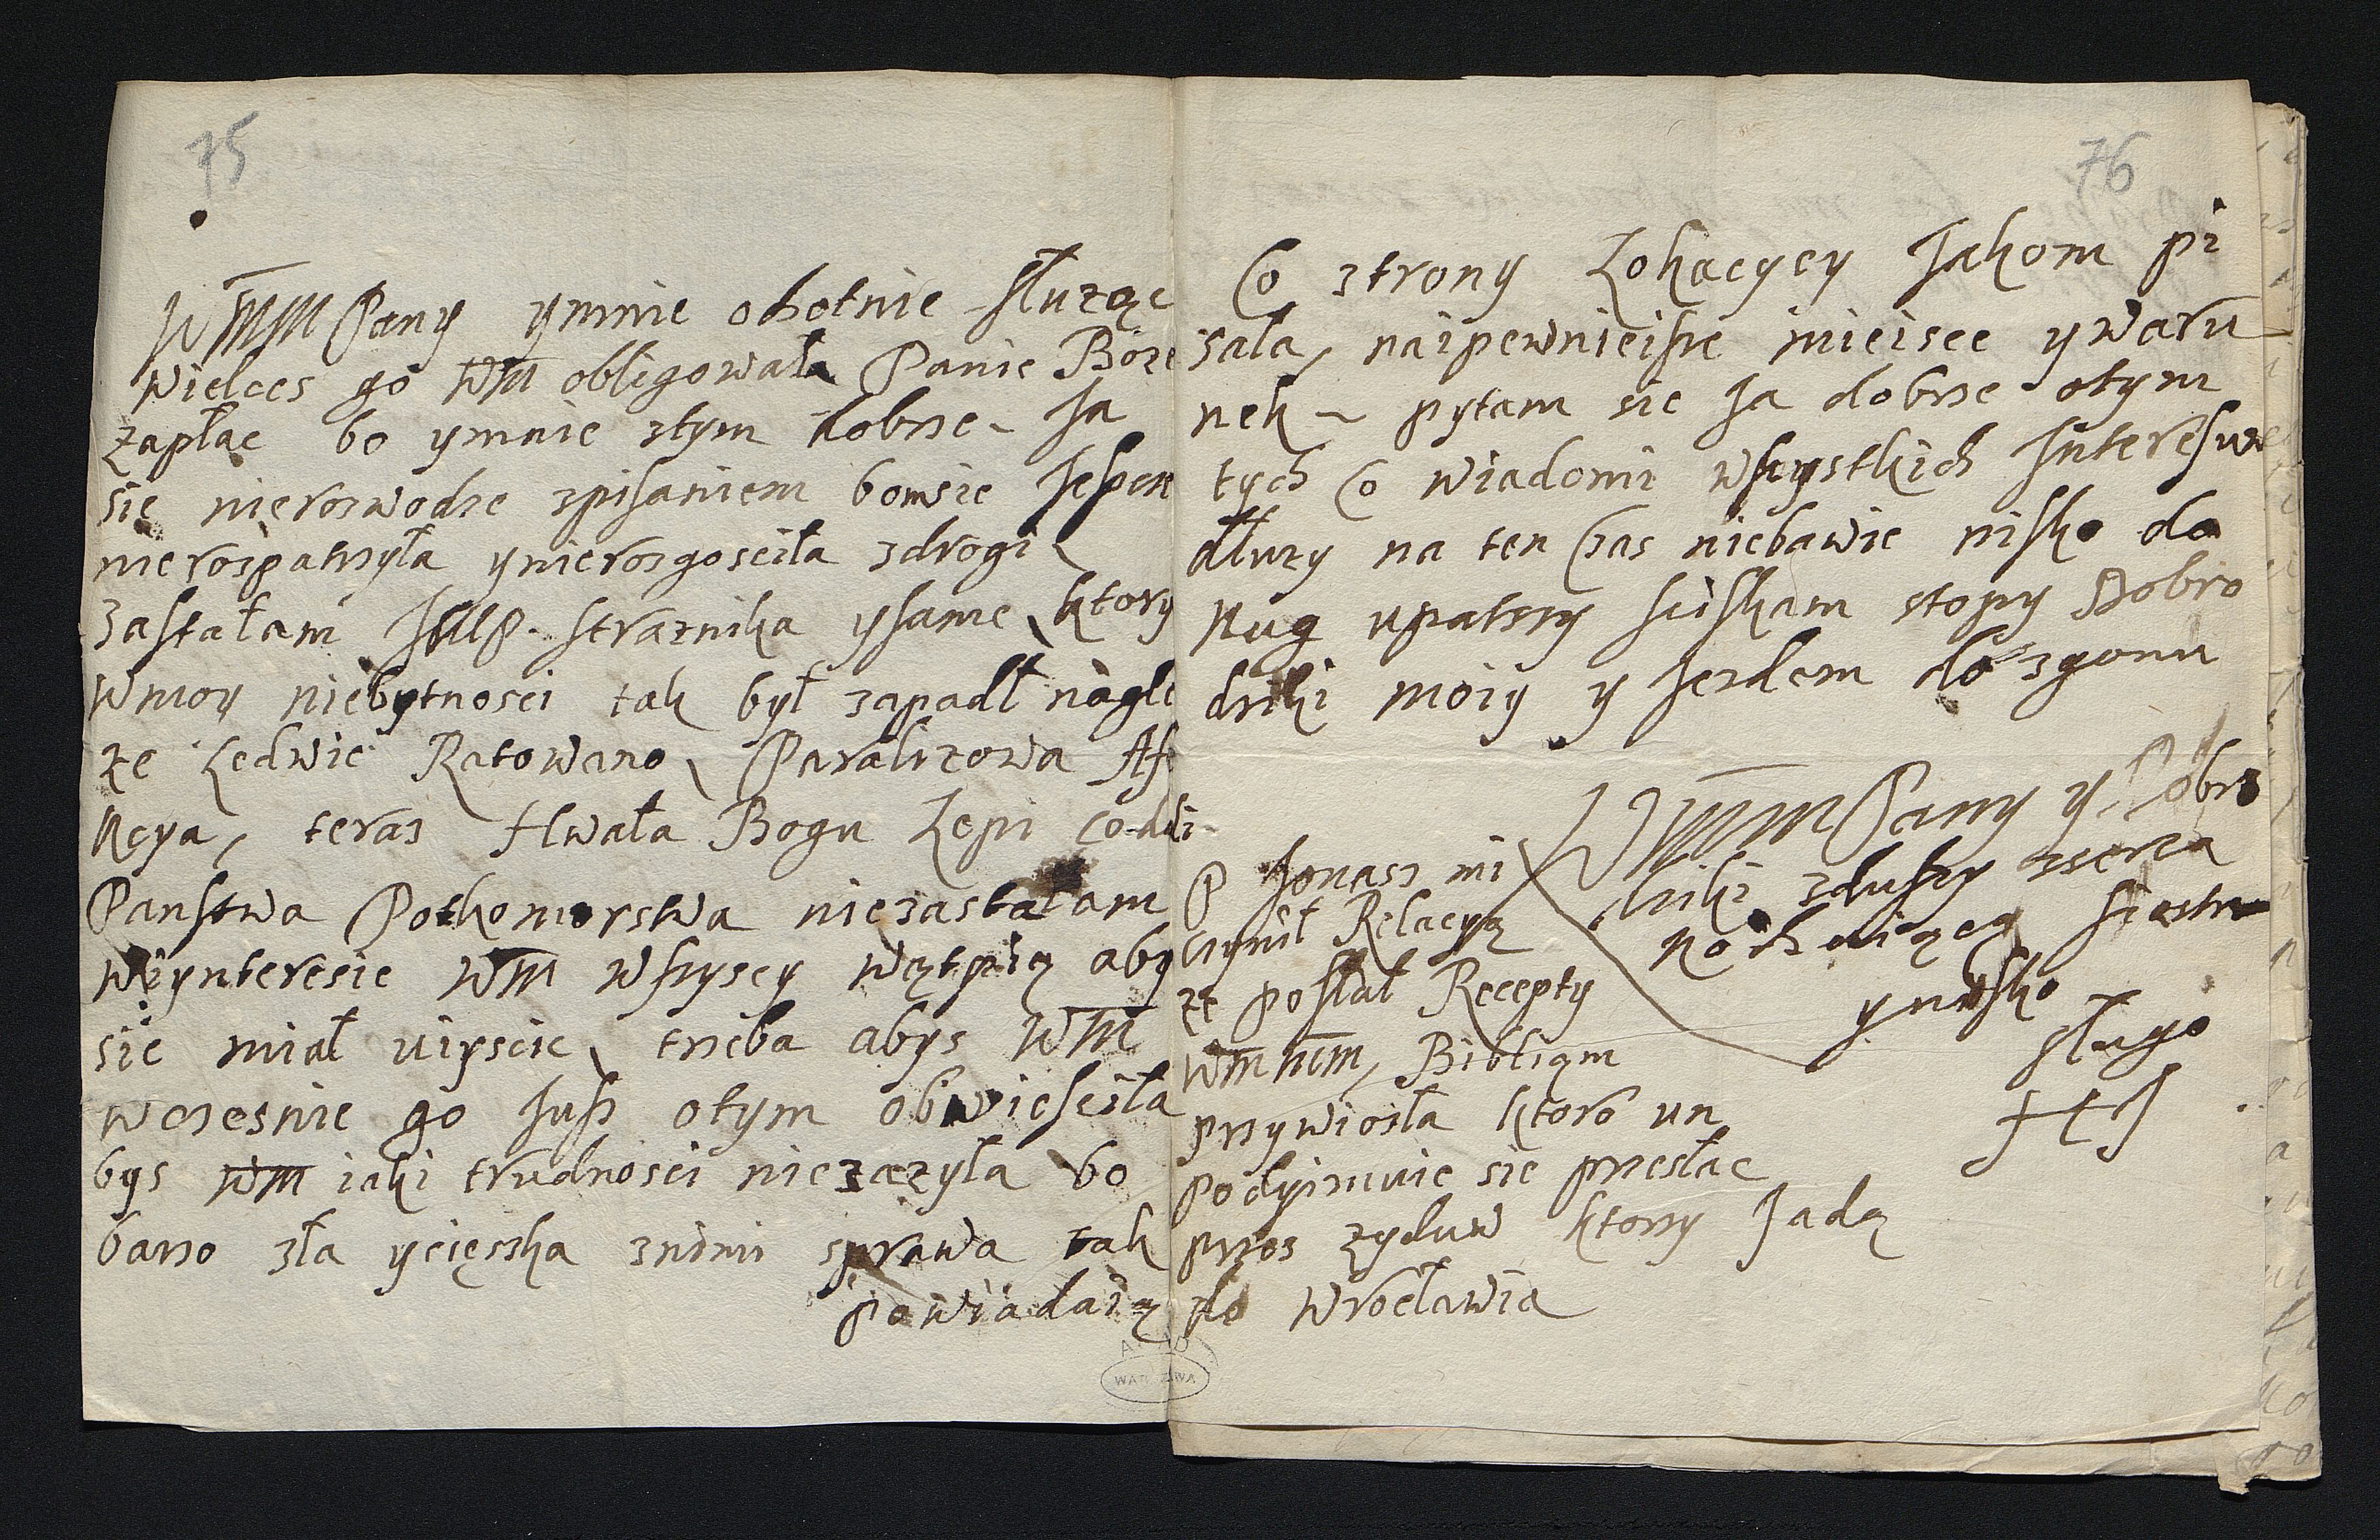 75
WMM Pany ymnie ohotnie słurząc
wielces go WM obligowała Panie Boze
zapłac bo ymnie stym dobrse Ja
sie nierozwodze spisaniem bomsie Jeszem
nierospatrzyła ynierozgosciła zdrogi
zastałam JMP. straznika ysame, ktory
wmoy niebytnosci tak był zapadł nagle
ze Ledwie Ratowano, Paralizowa Af
kcya, teras Hwała Bogu Lepi co-dzi-
Panstwa Potkomorstwa niezastałam
wiynteresie WM wszyscy wątpią aby
sie miał uiyscic, trzeba abys WM
wczesnie go Jusz otym obwiesciła
bys WM iaki trudnosci niezazyła bo
barzo zła ycięszka znimi sprawa tak
powiadaią
76
Co strony Lokacyey Jakom pi
sała, naipewnieisze mieisce ywaru
nek pytam sie Ja dobrze otym
tych co wiadomi wszystkich Interesuw
dłuzy na ten czas niebawie nisko do
Nug upatszy sciskam stopy Dobro
dziki moiy y Jezdem do zgonu
WMM Pany y Dobro
dziki zduszy zserca
kochaiącą siestrą
ynisko
sługo
HJ
P Jonasz mi
czynił Relacyą
ze posłał Recepty
WM MM, Bibliąm
przywiozła ktoro un
podyimuie sie przesłac
przes zyduw ktorzy Jadą
do wrocławia
AGAD
WARSZAWA